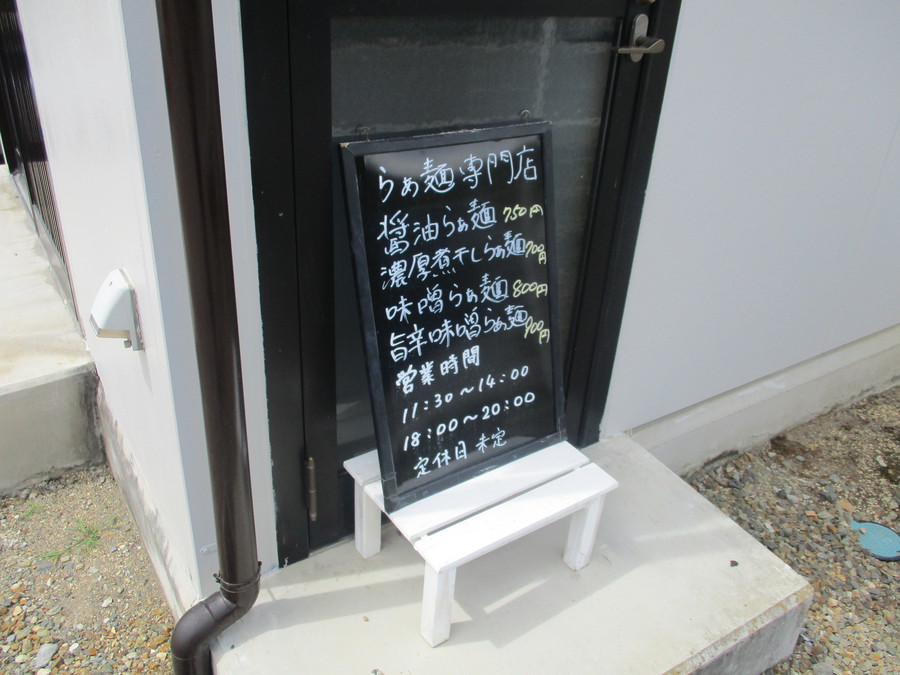 らぁ麺専門店
醤油らぁ麺 750円
濃厚煮干しらぁ麺 700円
味噌らぁ麺 800円
旨辛味噌らぁ麺 900円
営業時間
11:30〜14:00
18:00〜20:00
定休日 未定